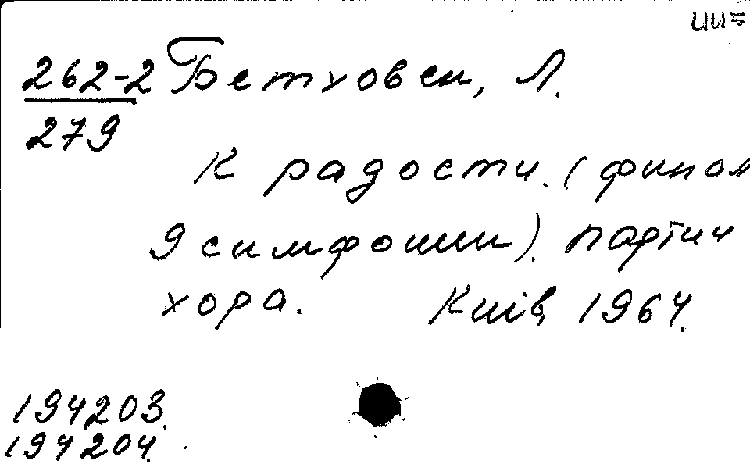 ЦИ=
262-2 Бетховен, Л.
279
К радости. (финал
9 симфонии). партии
хора. Київ, 1964.
194203.
194204.